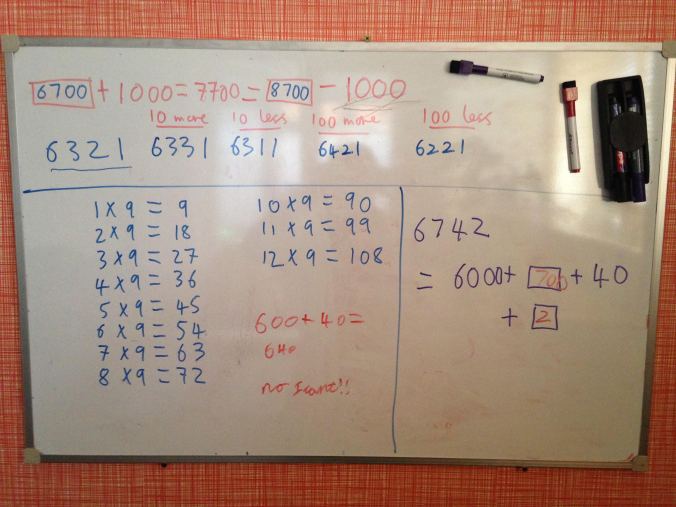 6700 + 1000 = 7700 = 8700 - 1000
10 more 10 less 100 more 100 less
6321 6331 6311 6421 6221
1 x 9 = 9
2 x 9 = 18
3 x 9 = 27
4 x 9 = 36
5 x 9 = 45
6 x 9 = 54
7 x 9 = 63
8 x 9 = 72
10 x 9 = 90
11 x 9 = 99
12 x 9 = 108
600 + 40 =
640
no I cant!!
6742
= 6000 + 700 + 40
+ 2